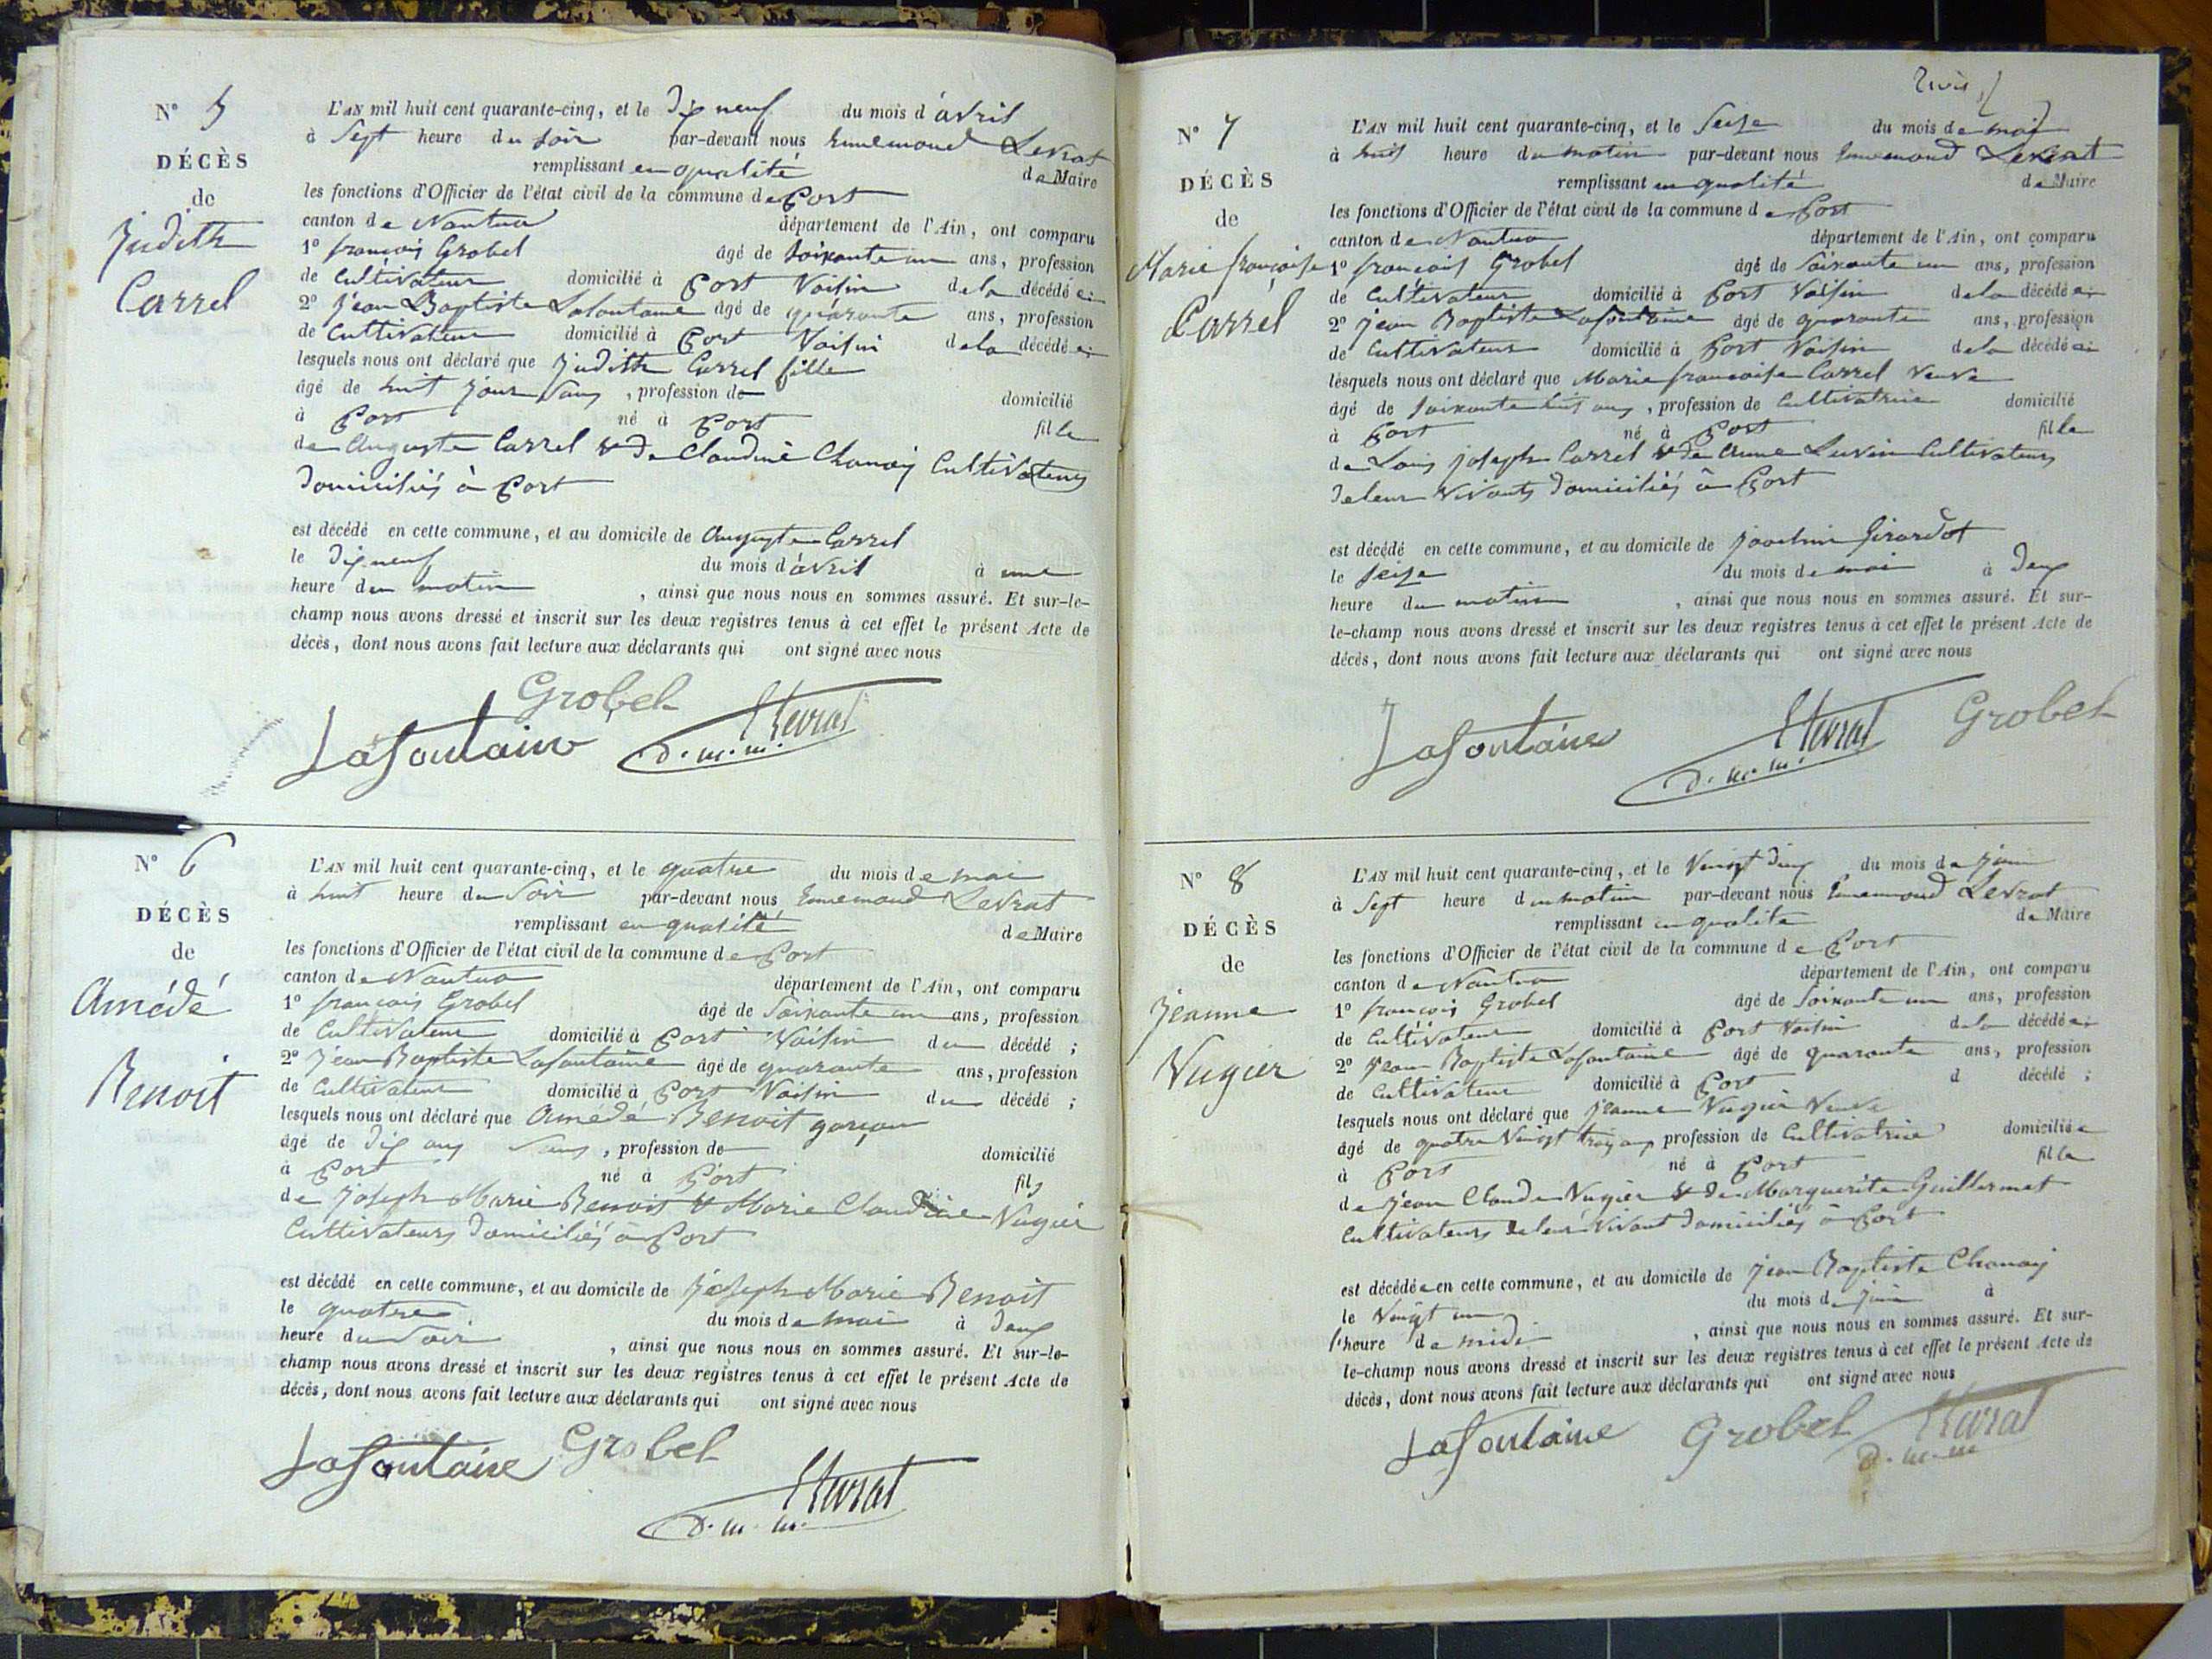 N° 5
DÉCÈS
de
Judith
Carrel
L'AN mil huit cent quarante-cinq, et le dix neuf du mois d'avril
à sept heure du soir par-devant nous Ennemond Levrat
remplissant en qualité de Maire
les fonctions d'Officier de l'état civil de la commune de Port
canton de Nantua département de l'Ain, ont comparu
1° françois Grobel âgé de soixante un ans, profession
de Cultivateur domicilié à Port Voisin de la décédée
2° jean Baptiste Lafontaine âgé de quarante ans, profession
de Cultivateur domicilié à Port Voisin de la décédée
lesquels nous ont déclaré que judith Carrel fille
âgé de huit jours sans, profession de domicilié
à Port né à Port fille
de Auguste Carrel & de Claudine Chanay Cultivateurs
domiciliés à Port
est décédé en cette commune, et au domicile de Auguste Carrel
le dix neuf du mois d'avril à une
heure du matin, ainsi que nous nous en sommes assuré. Et sur-le-
champ nous avons dressé et inscrit sur les deux registres tenus à cet effet le présent Acte de
décès, dont nous avons fait lecture aux déclarants qui ont signé avec nous
Grobel
Lafontaine ELevrat
d.m.m.
N° 6
DÉCÈS
de
Amédé
Benoit
L'AN mil huit cent quarante-cinq, et le quatre du mois de mai
à huit heure du soir par-devant nous Ennemond Levrat
remplissant en qualité de Maire
les fonctions d'Officier de l'état civil de la commune de Port
canton de Nantua département de l'Ain, ont comparu
1° françois Grobel âgé de soixante un ans, profession
de Cultivateur domicilié à Port Voisin du décédé ;
2° jean Baptiste Lafontaine âgé de quarante ans, profession
de Cultivateur domicilié à Port Voisin du décédé ;
lesquels nous ont déclaré que Amédé Benoit garçon
âgé de dix ans sans, profession de domicilié
à Port né à Port fils
de joseph Marie Benoit & Marie Claudine Vugier
Cultivateurs domiciliés à Port
est décédé en cette commune, et au domicile de joseph Marie Benoit
le quatre du mois de mai à deux
heure du soir, ainsi que nous nous en sommes assuré. Et sur-le-
champ nous avons dressé et inscrit sur les deux registres tenus à cet effet le présent Acte de
décès, dont nous avons fait lecture aux déclarants qui ont signé avec nous
Lafontaine Grobel
ELevrat
d.m.m.
N° 7
DÉCÈS
de
Marie françoise
Carrel
L'AN mil huit cent quarante-cinq, et le seize du mois de mai
à huit heure du matin par-devant nous Ennemond Levrat
remplissant en qualité de Maire
les fonctions d'Officier de l'état civil de la commune de Port
canton de Nantua département de l'Ain, ont comparu
1° françois Grobel âgé de soixante un ans, profession
de Cultivateur domicilié à Port Voisin de la décédée
2° jean Baptiste Lafontaine âgé de quarante ans, profession
de Cultivateur domicilié à Port Voisin de la décédée
lesquels nous ont déclaré que Marie françoise Carrel Veuve
âgé de soixante huit ans, profession de Cultivatrice domicilié
à Port né à Port fille
de Louis joseph Carrel & de Cultivateurs
de leur Vivants domiciliés à Port
est décédé en cette commune, et au domicile de joachim Girardot
le seize du mois de mai à deux
heure du matin, ainsi que nous nous en sommes assuré. Et sur-
le-champ nous avons dressé et inscrit sur les deux registres tenus à cet effet le présent Acte de
décès, dont nous avons fait lecture aux déclarants qui ont signé avec nous
Lafontaine ELevrat Grobel
d.m.m.
N° 8
DÉCÈS
de
jeanne
Vugier
L'AN mil huit cent quarante-cinq, et le Vingt deux du mois de juin
à sept heure du matin par-devant nous Ennemond Levrat
remplissant en qualité de Maire
les fonctions d'Officier de l'état civil de la commune de Port
canton de Nantua département de l'Ain, ont comparu
1° françois Grobel âgé de soixante un ans, profession
de Cultivateur domicilié à Port Voisin de la décédée
2° jean Baptiste Lafontaine âgé de quarante ans, profession
de Cultivateur domicilié à Port d décédé ;
lesquels nous ont déclaré que jeanne Vugier Veuve
âgé de quatre Vingt trois ans profession de Cultivatrice domiciliée
à Port né à Port fille
de jean Claude Vugier & de Marguerite Guillermet
Cultivateurs de leur Vivant domiciliés à Port
est décédée en cette commune, et au domicile de jean Baptiste Chanay
le Vingt un du mois de juin à
l'heure de midi, ainsi que nous nous en sommes assuré. Et sur-
le-champ nous avons dressé et inscrit sur les deux registres tenus à cet effet le présent Acte de
décès, dont nous avons fait lecture aux déclarants qui ont signé avec nous
Lafontaine Grobel ELevrat
d.m.m